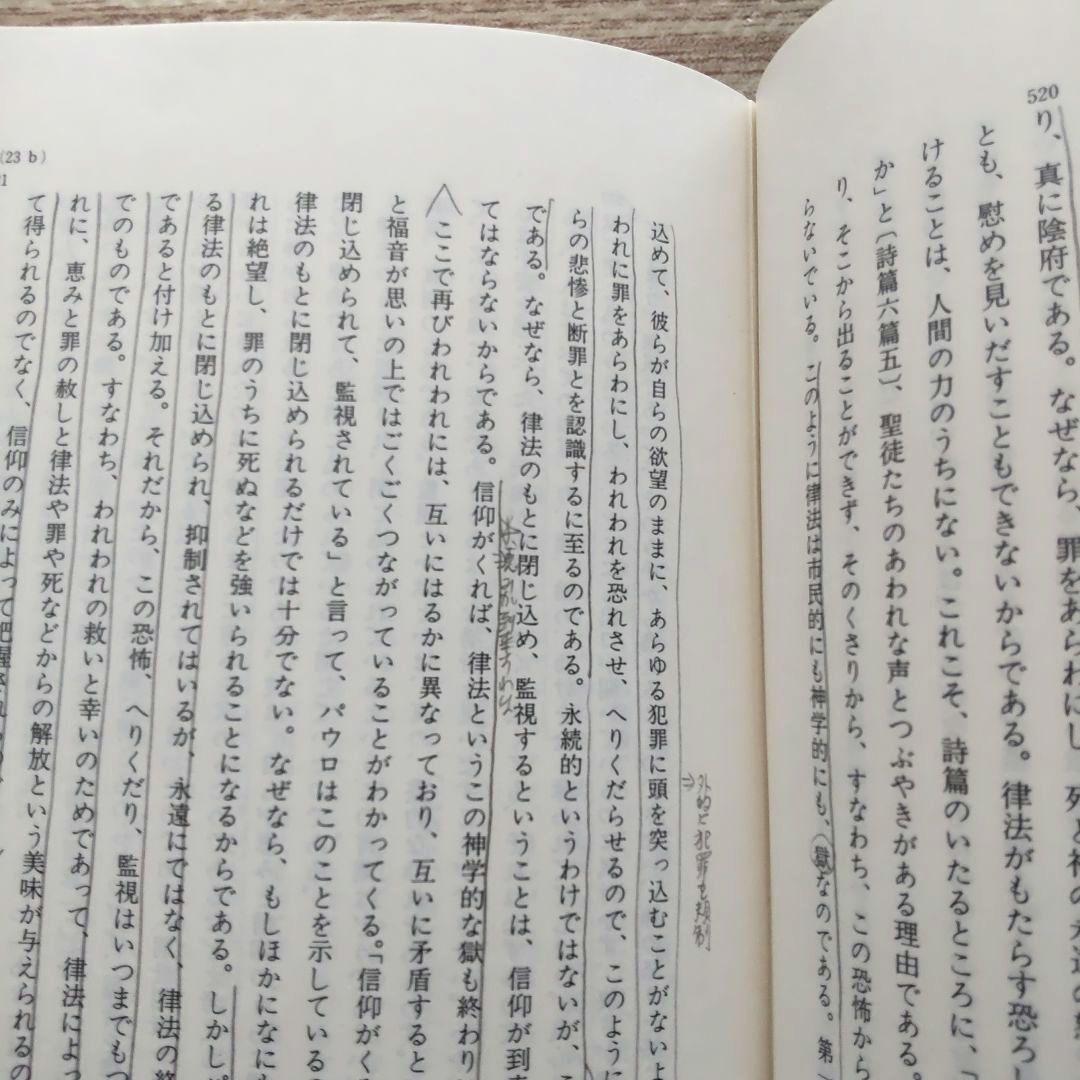 520
り、真に陰府である。なぜなら、罪をあらわにし、死と
とも、慰めを見いだすこともできないからである。律法がもたらす恐ろし
けることは、人間の力のうちにない。これこそ、詩篇のいたるところに、「
か」と〔詩篇六篇五〕、聖徒たちのあわれな声とつぶやきがある理由である。
り、そこから出ることができず、そのくさりから、すなわち、この恐怖から
らないでいる。このように律法は市民的にも神学的にも、獄なのである。第
(23 b)
込めて、彼らが自らの欲望のままに、あらゆる犯罪に頭を突っ込むことがないよ
外的に犯罪を規制
われに罪をあらわにし、われわれを恐れさせ、へりくだらせるので、このように
らの悲惨と断罪とを認識するに至るのである。永続的というわけではないが、こ
である。なぜなら、律法のもとに閉じ込め、監視するということは、信仰が到来
てはならないからである。信仰がくれば、律法というこの神学的な獄も終わり
ここで再びわれわれには、互いにはるかに異なっており、互いに矛盾すると
と福音が思いの上ではごくごくつながっていることがわかってくる。「信仰がく
閉じ込められて、監視されている」と言って、パウロはこのことを示している
律法のもとに閉じ込められるだけでは十分でない。なぜなら、もしほかになに
れは絶望し、罪のうちに死ぬなどを強いられることになるからである。しかしパ
る律法のもとに閉じ込められ、抑制されてはいるが、永遠にではなく、律法の終
であると付け加える。それだから、この恐怖、へりくだり、監視はいつまでもつ
でのものである。すなわち、われわれの救いと幸いのためであって、律法によっ
れに、恵みと罪の赦しと律法や罪や死などからの解放という美味が与えられるの
て得られるのでなく、信仰のみによって把握され